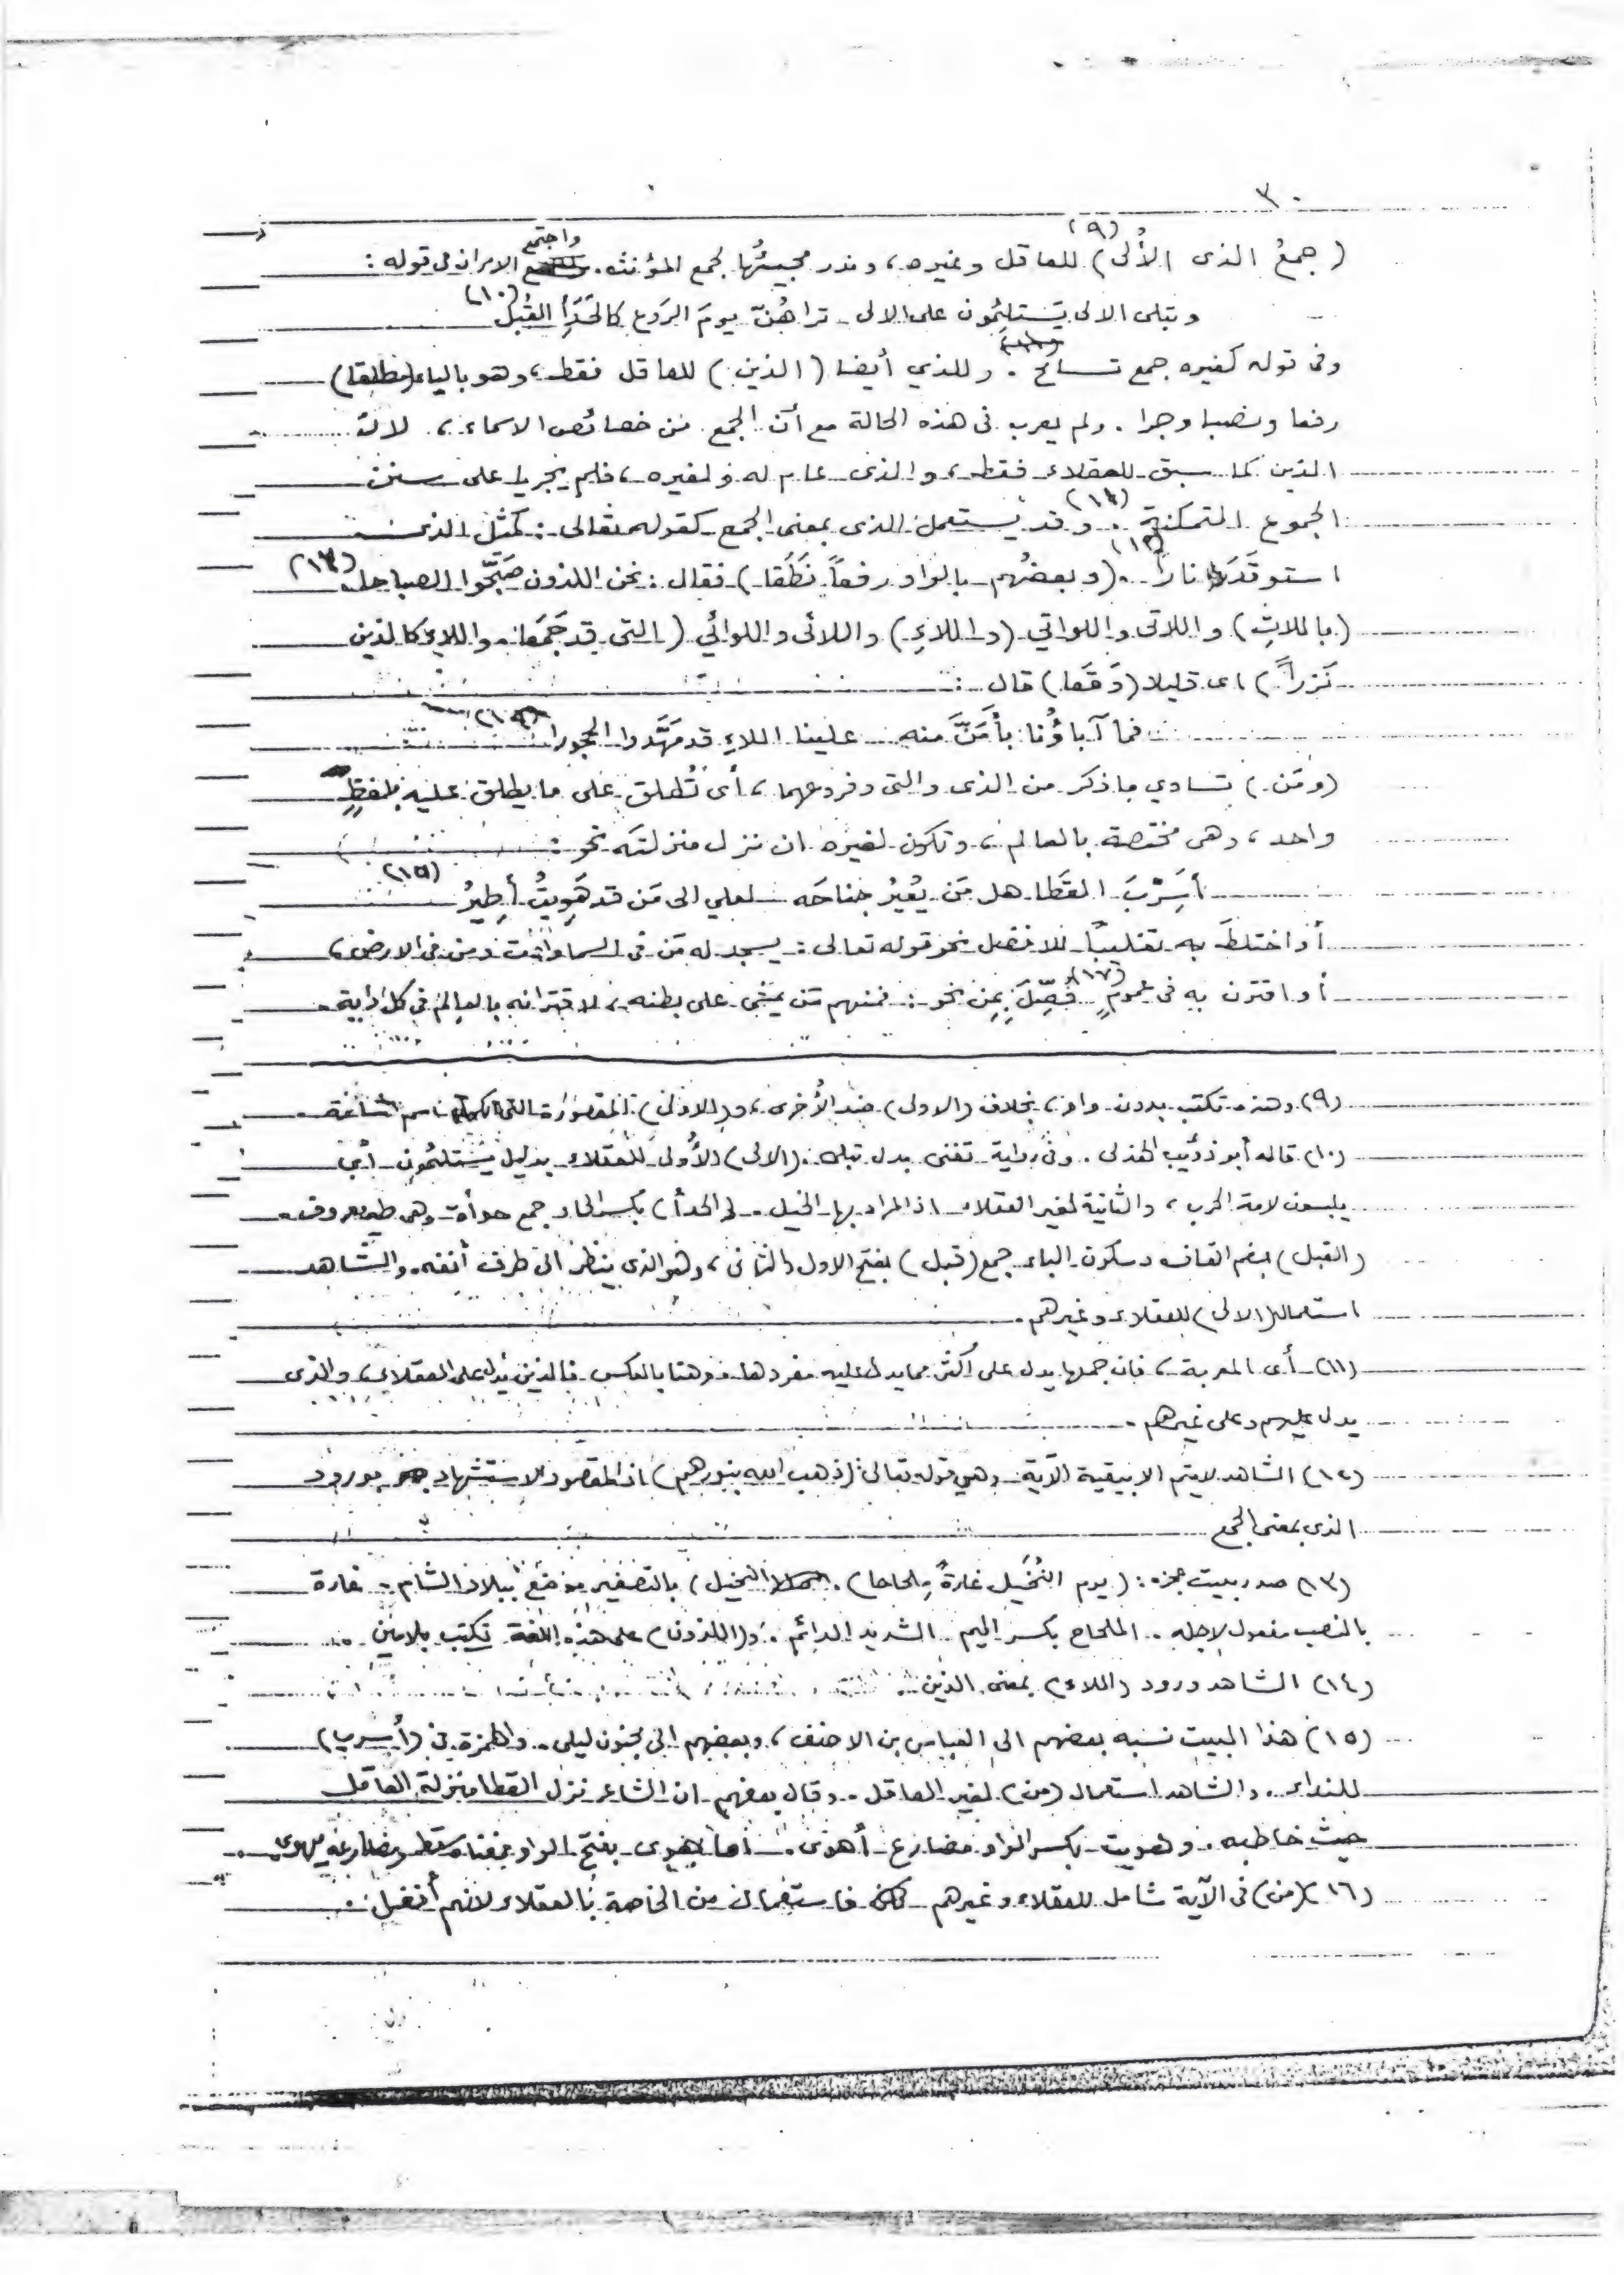 ٣٠
(جمعُ الذى الأُلى)(٩) للعاقل وغيره، وندر مجيئُها لجمع المؤنث. واجتمع الامران فى قوله :
وتبلى الالى يَستلئِمُون على الالى - تراهُنّ يومَ الرَوع كالحَدَأِ القُبْل (١٠)
وفى قوله كغيره جمع تسامح . وللذي أيضا (الذين) للعاقل فقط، وهو بالياء (مطلقا)
رفعا ونصبا وجرا . ولم يعرب فى هذه الحالة مع أن الجمع من خصائص الاسماء، لانّ
الذين كما سبق للعقلاء فقط، والذى عام له ولغيره، فلم يجريا على سنن
الجموع المتمكنة (١١). وقد يستعمل الذى بمعنى الجمع كقوله تعالى : كمثل الذى
استوقَدَ ناراً (١٢). (وبعضُهم بالواو رفعاً نَطَقا) فقال : نحن اللذون صَبَّحُوا الصباحا (١٣)
(باللاتِ) واللاتى واللواتي (واللاءِ) واللائى واللوائي (التى قد جَمَعَا. واللاءِ كالذين
نَزراً) اى قليلا (وَقَعَا) قال :
فما آباؤُنا بأمَنَّ منه علينا اللاءِ قد مَهَّدوا الحجورا (١٤)
(ومَن) تساوي ما ذكر من الذى والتى وفروعهما، أى تُطلق على ما يطلق عليه بلفظٍ
واحد، وهى مختصة بالعالم، وتكون لغيره ان نزل منزلتَه نحو :
أَسِرْبَ القَطا هل مَن يُعيرُ جناحَه لعلي الى مَن قد هَوِيتُ أطِيرُ (١٥)
أو اختلطَ به تغليبًا للافضل نحو قوله تعالى : يسجد له مَن فى السماوات ومن فى الارض،
أو اقترن به فى عمومٍ فُصِّلَ بِمِن نحو : فمنهم مَن يمشى على بطنه، لاقترانه بالعالم فى كل دابة.
(٩) وهذه تكتب بدون واو، بخلاف (الاولى) ضد الأُخرى، و(الاولى) المقصورة التى اسم
(١٠) قاله أبو ذؤيب الهذلى . وفى رواية تفنى بدل تبلى. (الالى) الأولى للعقلاء بدليل يستلئمون أى
يلبسون لامة الحرب، والثانية لغير العقلاء اذ المراد بها الخيل. (الحدأ) بكسر الحاء جمع حدأة وهى طير معروف.
(القبل) بضم القاف وسكون الباء جمع (قبل) بفتح الاول والثانى، وهو الذى ينظر الى طرف أنفه. والشاهد
استعمال (الالى) للعقلاء وغيرهم.
(١١) أى المعربة، فان جمعها يدل على أكثر مما يدل عليه مفردها. وهنا بالعكس فالذين يدل على العقلاء، والذى
يدل عليهم وعلى غيرهم.
(١٢) الشاهد لا يتم الا ببقية الآية وهي قوله تعالى: (ذهب الله بنورهم) اذ المقصود الاستشهاد بورود
الذى بمعنى الجمع
(١٣) صدر بيت عجزه : (يوم النُخَيل غارةً مِلحاحا). (النخيل) بالتصغير موضع ببلاد الشام. غارة
بالنصب مفعول لاجله. الملحاح بكسر الميم الشديد الدائم. و(اللذون) على هذه اللغة تكتب بلامين.
(١٤) الشاهد ورود (اللاء) بمعنى الذين.
(١٥) هذا البيت نسبه بعضهم الى العباس بن الاحنف، وبعضهم الى مجنون ليلى. والهمزة فى (أسرب)
للنداء. والشاهد استعمال (من) لغير العاقل. وقال بعضهم ان الشاعر نزل القطا منزلة العاقل
حيث خاطبه. وهويت بكسر الواو مضارع أهوى. أما هوى بفتح الواو بمعناه سقط ومضارعه يهوى.
(١٦) (من) فى الآية شامل للعقلاء وغيرهم فاستعمال من الخاصة بالعقلاء لانهم أفضل.